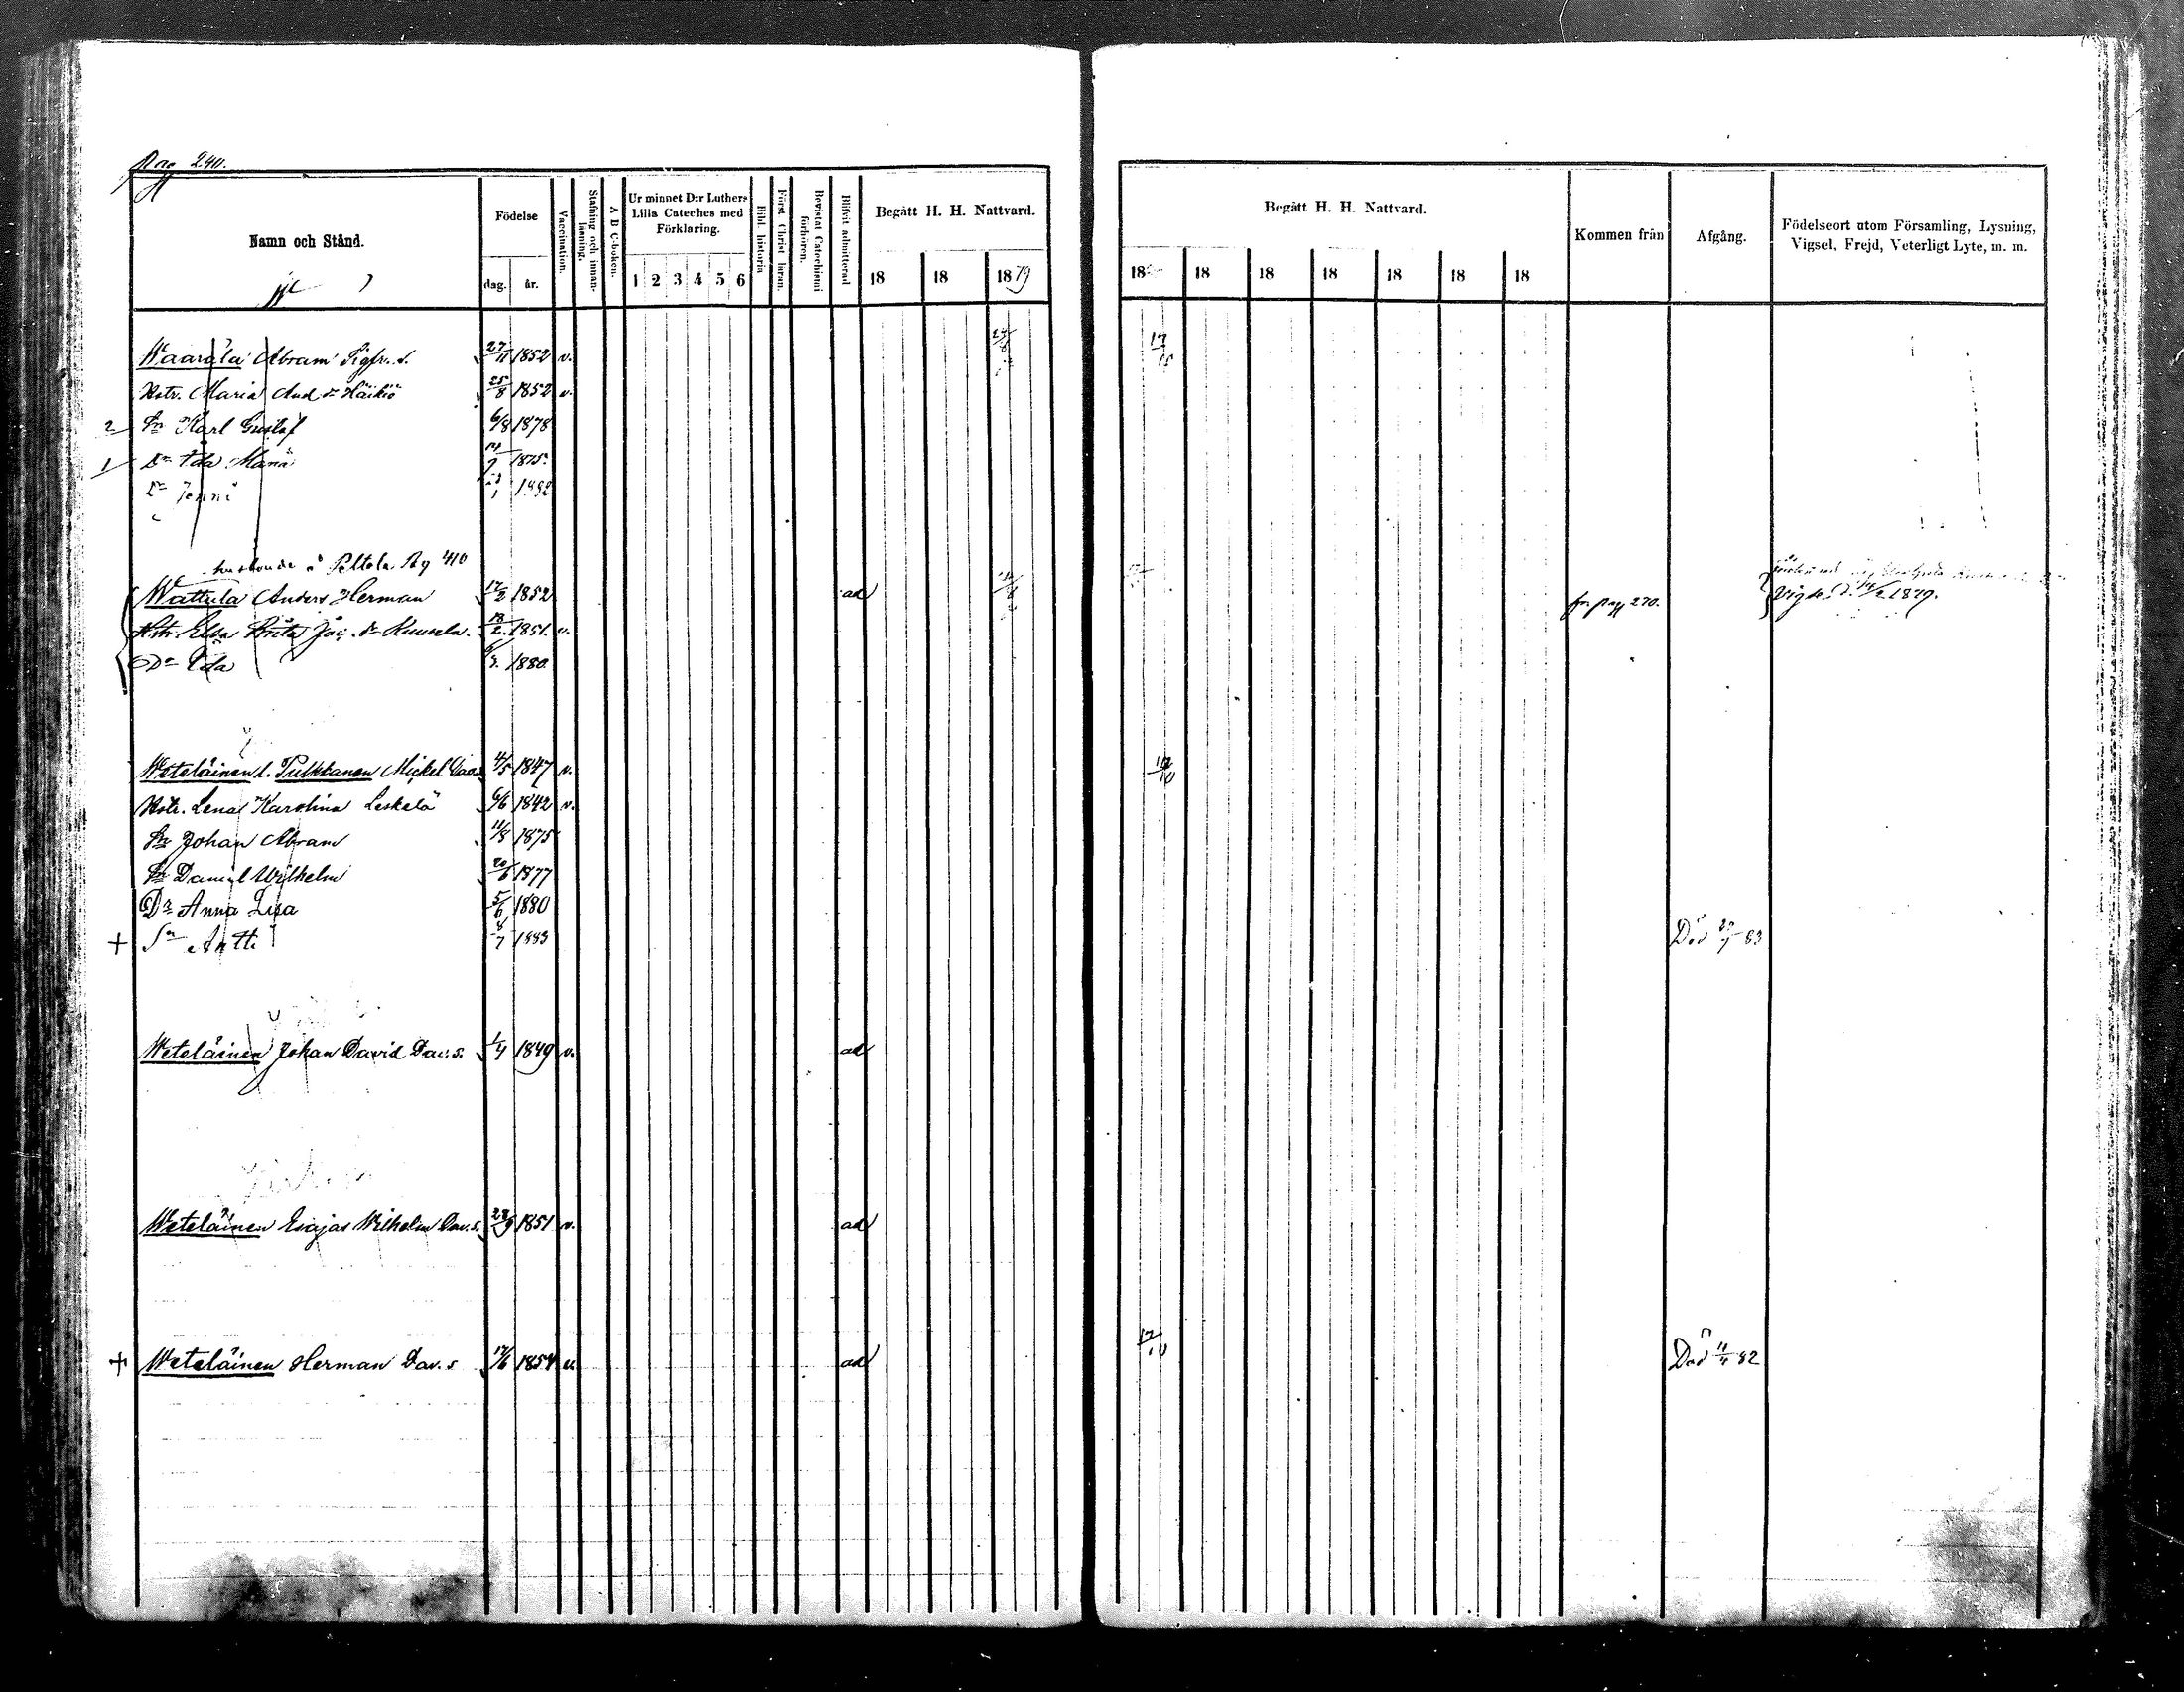 Pag 240.
Namn och Stånd.
Födelse
dag. år.
Vaccination.
Stafning och innanläsning.
A B C-boken.
Ur minnet D:r Luthers Lilla Cateches med Förklaring.
1 2 3 4 5 6
Bibl. historia
Först Christ läran.
Bevistat Catechismi förhören.
Blifvit admitterad
Begått H. H. Nattvard.
18 18 1879
Begått H. H. Nattvard.
18 18 18 18 18 18 18
Kommen från
Afgång.
Födelseort utom Församling, Lysning, Vigsel, Frejd, Veterligt Lyte, m. m.
Kaarala Abram Sigfr. s. 27/11 1852 v. 17/10
Hstr. Maria And. dr Häikiö 25/8 1852 v.
2 Sn Karl Gustaf 6/8 1878
1 Dr Ida Maria 1875
Dr Jenni 1882
Peltola Pag 410
Wattula Anders Herman 17/2 1852 ad fr. pag 270. Vigde d. 1879.
Hstr. Elsa Brita Jac. dr 18/2 1851. v.
Dr Ida 1880
Weteläinen l. Pulkkanen Mickel Dav. s. 4/5 1847 v. 17/10
Hstr. Lena Karolina Leskelä 6/6 1842 v.
Sn Johan Abram 11/8 1875
Sn Daniel Wilhelm 20/6 1877
Dr Anna Lisa 5/6 1880
+ Sn Antti 1883 Död 83
Weteläinen Johan David Dav. s. 1/4 1849 v. ad
Weteläinen Esajas Wilhelm Dav. s. 28/9 1851 v. ad
+ Weteläinen Herman Dav. s 1854 v. ad 17/10 Död 82